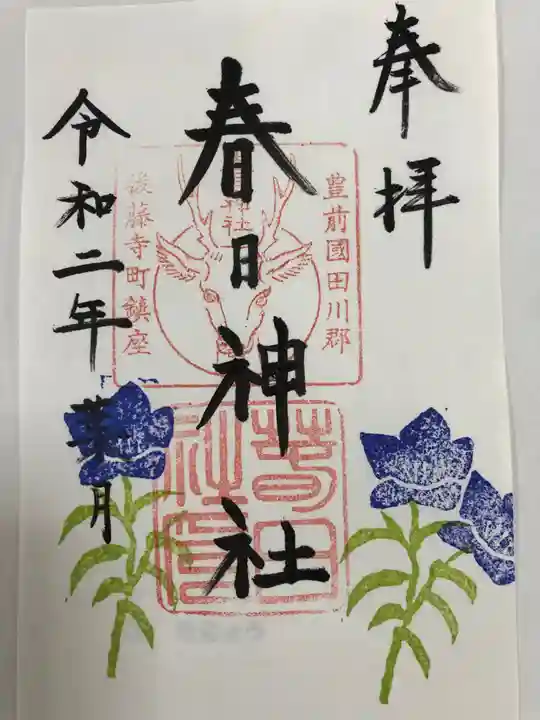 奉拝
豊前國田川郡
春日神社
後藤寺町鎮座
令和二年葉月